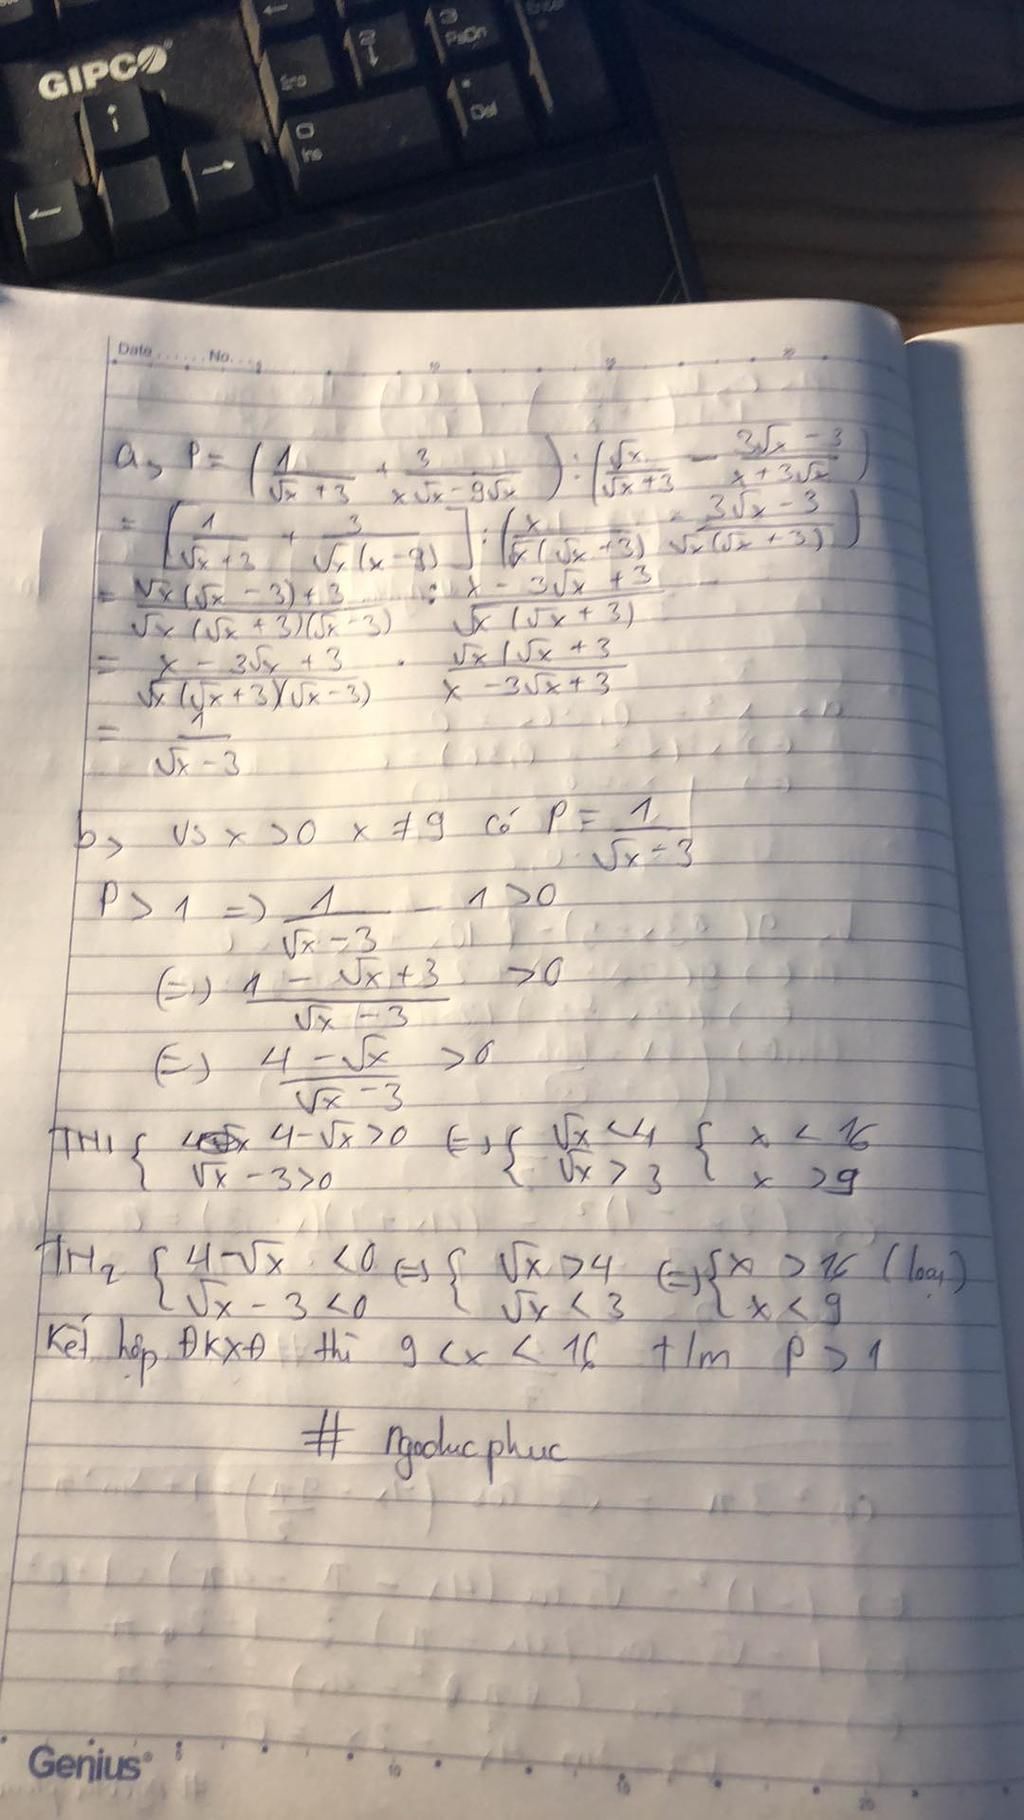 GIPCO
3
PgDn
2
↓
Ins
.
Del
0
Ins
←
→
Date ...... No. ...
10
20
a, P = (1/(√x + 3) + 3/(x√x - 9√x)) : (√x/(√x + 3) - (3√x - 3)/(x + 3√x))
= [1/(√x + 3) + 3/(√x(x - 9))] : (x/(√x(√x + 3)) - (3√x - 3)/(√x(√x + 3)))
= (√x(√x - 3) + 3)/(√x(√x + 3)(√x - 3)) : (x - 3√x + 3)/(√x(√x + 3))
= (x - 3√x + 3)/(√x(√x + 3)(√x - 3)) . √x(√x + 3/(x - 3√x + 3)
= 1/(√x - 3)
b, Vs x > 0 x ≠ 9 có P = 1/(√x - 3)
P > 1 => 1/(√x - 3) - 1 > 0
(=) (1 - √x + 3)/(√x - 3) > 0
(=) (4 - √x)/(√x - 3) > 0
TH1 { 4 - √x > 0 (=) { √x < 4 { x < 16
√x - 3 > 0 √x > 3 x > 9
TH2 { 4 - √x < 0 (=) { √x > 4 (=) { x > 16 (loại)
√x - 3 < 0 √x < 3 x < 9
Kết hợp ĐKXĐ thì 9 < x < 16 t/m P > 1
# ngoducphuc
Genius
5
10
15
20